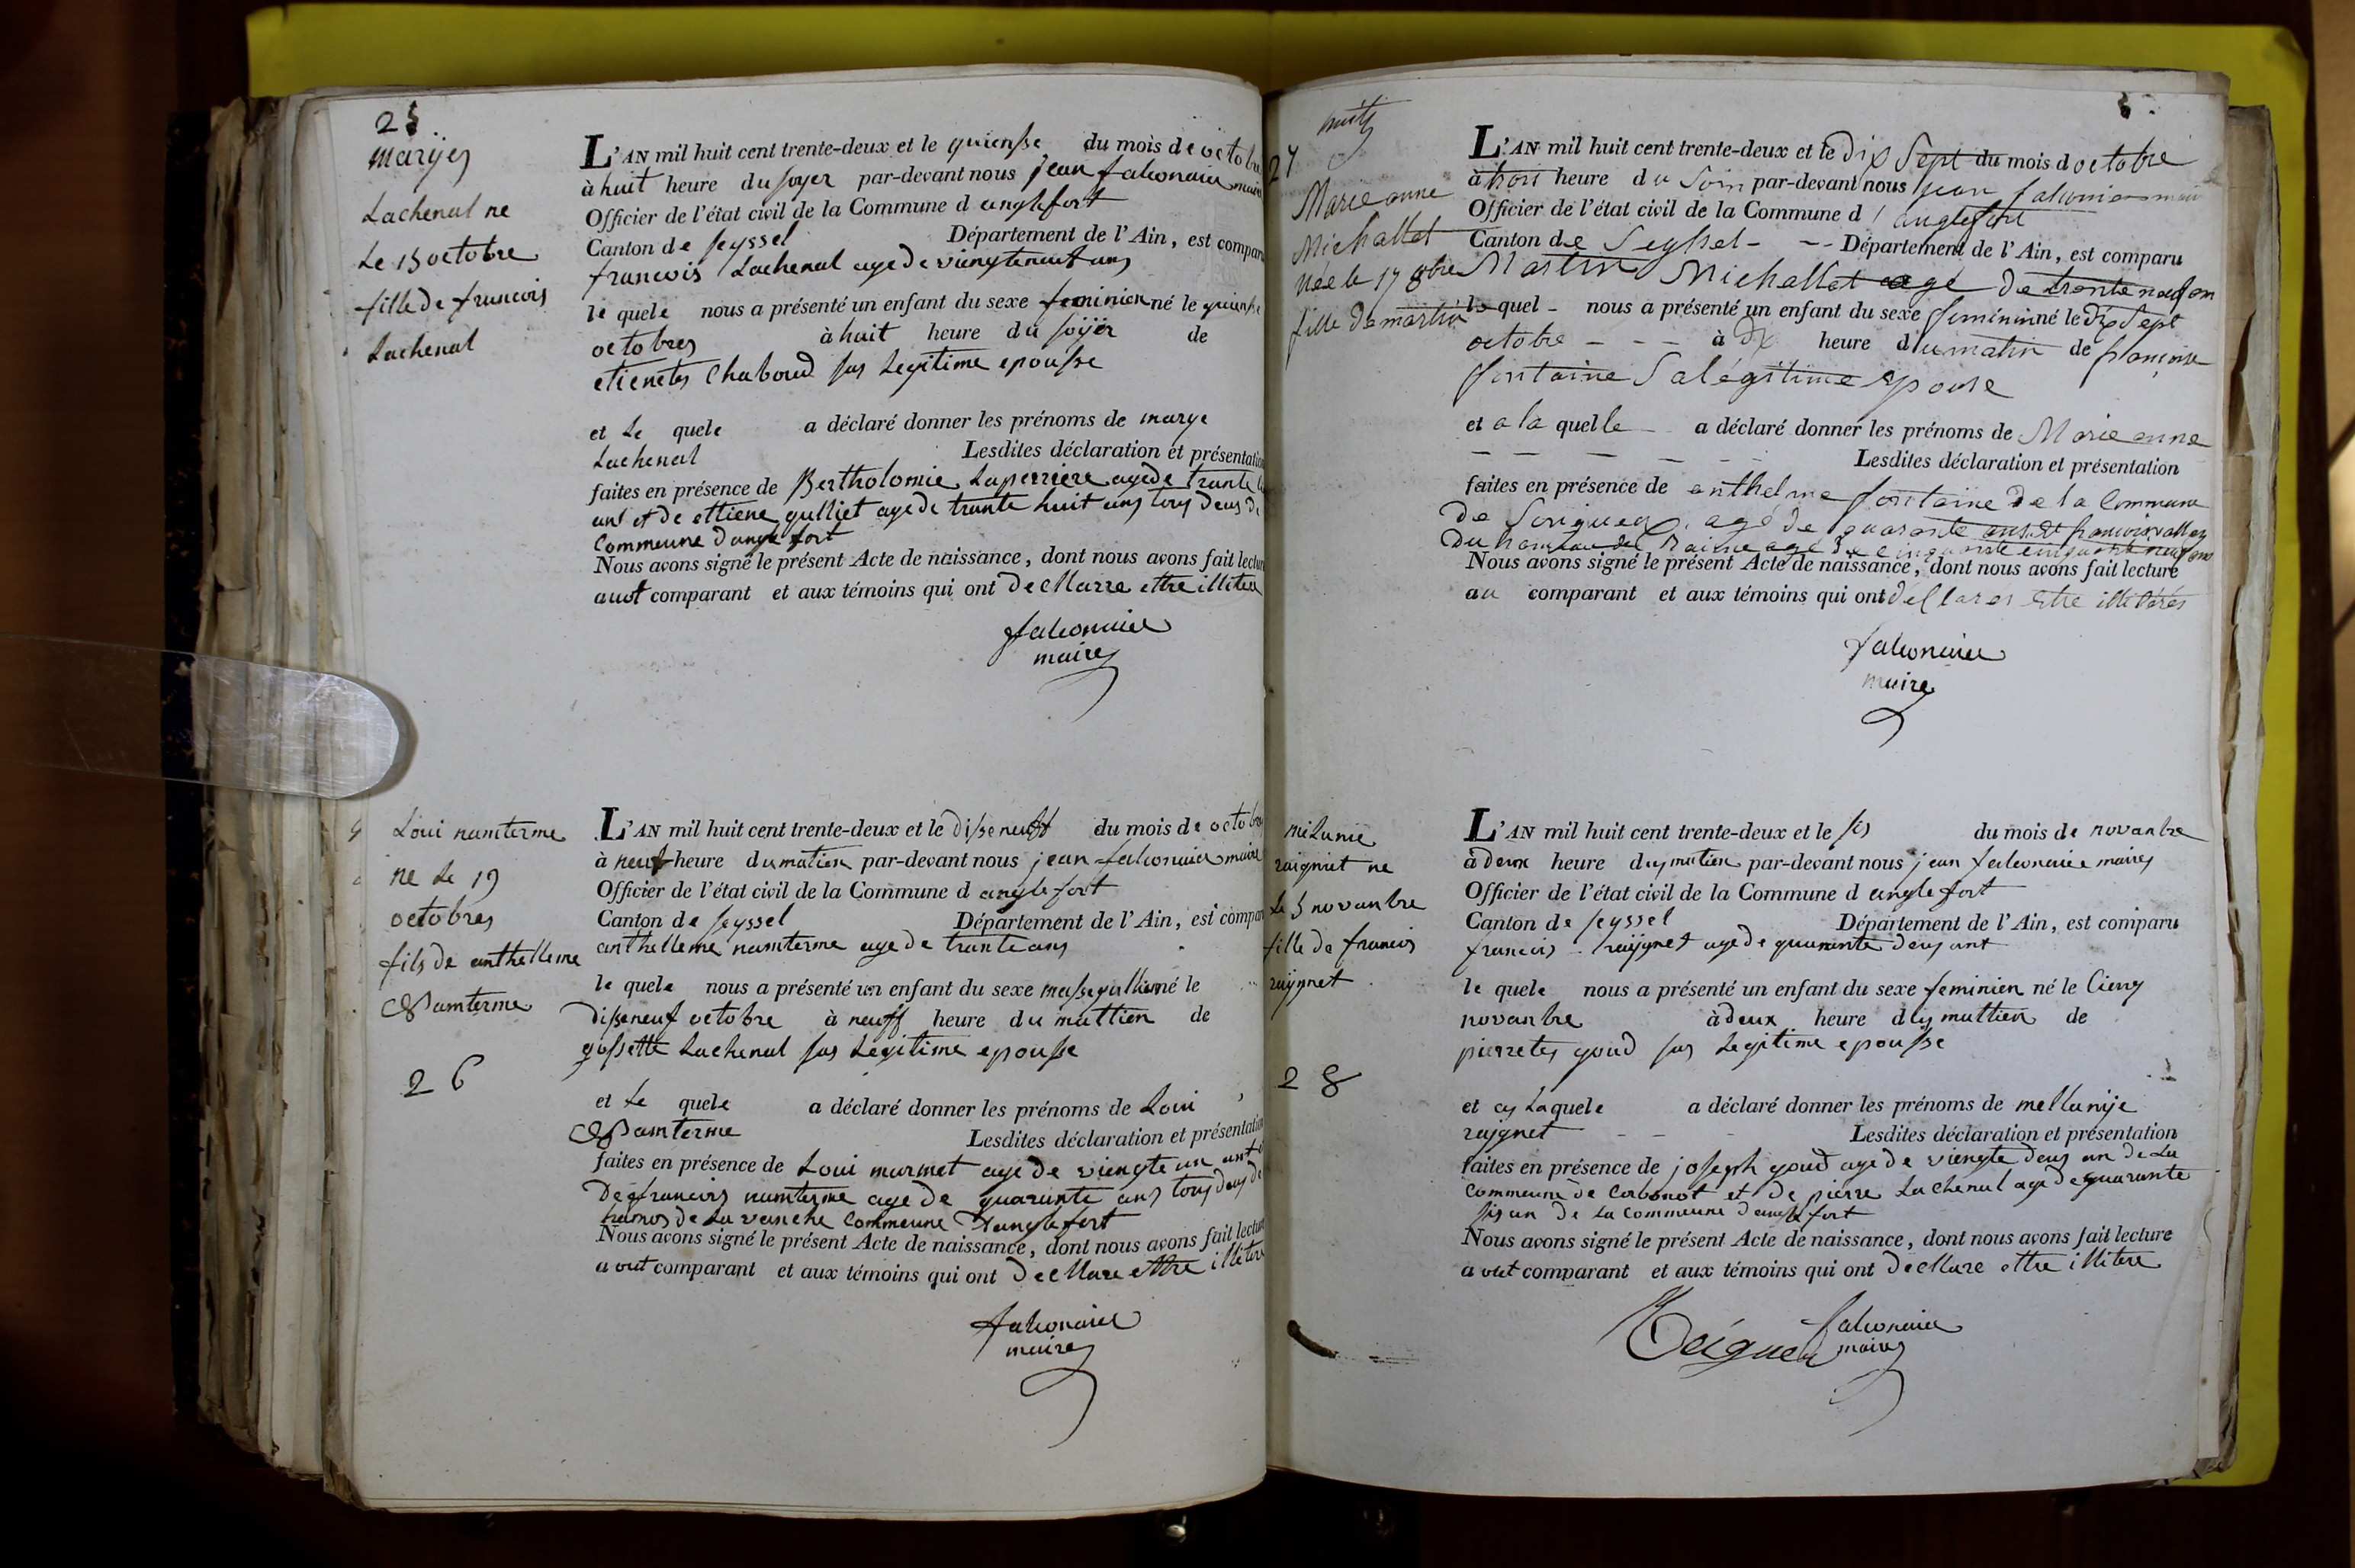 25
maryes
Lachenal ne
Le 15 octobre
fille de francois
Lachenal
L'AN mil huit cent trente-deux et le quiensse du mois de octobre
à huit heure du soyer par-devant nous jean falconnier maire
Officier de l'état civil de la Commune d anglefort
Canton de seyssel Département de l'Ain, est compar
francois Lachenal age de viengteneuf ans
le quele nous a présenté un enfant du sexe feminien né le quiensse
octobres à huit heure du soÿer de
etienetes Chaboud sas Legitime epousse
et Le quele a déclaré donner les prénoms de marye
Lachenal Lesdites déclaration et présentation
faites en présence de Bertholomie Laperriere age de trante
ant et de ettiene gulliet age de trante huit ans tous deus de
Commeune d anglefort
Nous avons signé le présent Acte de naissance, dont nous avons fait lecture
auot comparant et aux témoins qui ont decllarre ettre illitere
falconnier
maire
Loui namterme
ne Le 19
octobres
fils de anthelleme
Namterme
26
L'AN mil huit cent trente-deux et le disseneuff du mois de octobre
à neuf heure du matien par-devant nous jean falconnier maire
Officier de l'état civil de la Commune d anglefort
Canton de seyssel Département de l'Ain, est compar
anthelleme namterme age de trante ans
le quele nous a présenté un enfant du sexe massequllien né le
disseneuf octobre à neuff heure du mattien de
gossette Lachenal sas Legitime epousse
et Le quele a déclaré donner les prénoms de Loui
Namterme Lesdites déclaration et présentation
faites en présence de Loui murmet age de viengte un ant
de francois namterme age de quarante ans tous deus de
hamos de La vanche Commeune d anglefort
Nous avons signé le présent Acte de naissance, dont nous avons fait lecture
a out comparant et aux témoins qui ont decllare ettre illitere
falconnier
maire
27
Marie anne
Michallet
Née le 17 8bre
fille de martin
L'AN mil huit cent trente-deux et le dix Sept du mois d octobre
à trois heure du Soir par-devant nous jean falconnier maire
Officier de l'état civil de la Commune d'anglefort
Canton de Seyssel Département de l'Ain, est comparu
Martin Michallet agé de trente neuf an
le quel nous a présenté un enfant du sexe féminin né le dix Sept
octobre à dix heure du matin de françoise
fontaine Sa légitime epouse
et a la quelle a déclaré donner les prénoms de Marie anne
Lesdites déclaration et présentation
faites en présence de anthelme fontaine de la Commune
de Songieu agé de quarante ans et francois
du hameau de agé de cinquante neuf ans
Nous avons signé le présent Acte de naissance, dont nous avons fait lecture
au comparant et aux témoins qui ont declares estre illitérés
falconnier
maire
milanie
raigniat ne
Le 5 novanbre
fille de francois
raÿgnet
28
L'AN mil huit cent trente-deux et le sis du mois de novanbre
à deux heure dus matien par-devant nous jean falconnier maires
Officier de l'état civil de la Commune d anglefort
Canton de seyssel Département de l'Ain, est comparu
francois raÿgnet age de quarante deus ant
le quele nous a présenté un enfant du sexe feminien né le Cienq
novanbre à deux heure dus mattien de
pierretes goud sas Legitime epousse
et as Laquele a déclaré donner les prénoms de mellanije
raignet Lesdites déclaration et présentation
faites en présence de joseph goud age de viengte deus an de La
Commeune de Corbonot et de pierre Lachenal age de quarante
sis an de La Commeune d anglefort
Nous avons signé le présent Acte de naissance, dont nous avons fait lecture
a out comparant et aux témoins qui ont decllare ettre illitere
falconnier
maires